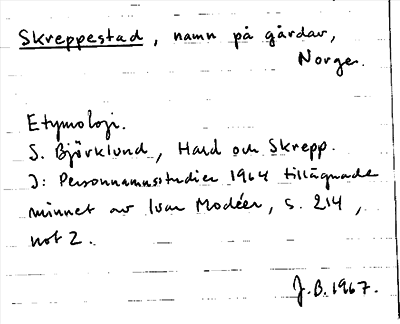 Skreppestad, namn på gårdar,
Norge.
Etymologi.
S. Björklund, Hard och Skrepp.
I: Personnamnsstudier 1964 tillägnade
minnet av Ivar Modéer, s. 214,
not 2.
J.B. 1967.